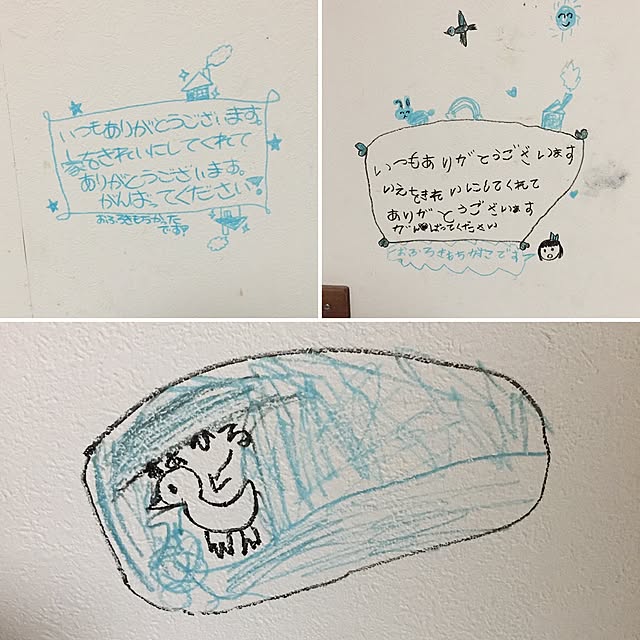 いつもありがとうございます。
家をきれいにしてくれて
ありがとうございます。
がんばってください!
おふろきもちかった
です!
いつもありがとうございます
いえをきれいにしてくれて
ありがとうございます
がんばってください
おふろきもちかったです